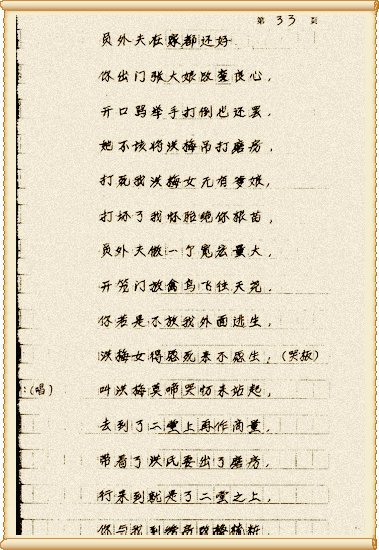 第 33 页
员外夫在家都还好
你出门张大娘改变良心，
开口骂举手打倒也还罢，
她不该将洪梅吊打磨房，
打死我洪梅女无有爹娘，
打坏了我怀胎绝你根苗，
员外夫做一个宽宏量大，
开笼门放禽鸟飞往天苑，
你若是不放我外面逃生，
洪梅女得感死来不感生，（哭板）
：（唱） 叫洪梅莫啼哭忙来站起，
去到了二堂上再作商量，
带着了洪氏妻出了磨房，
行来到就是了二堂之上，
你与我到